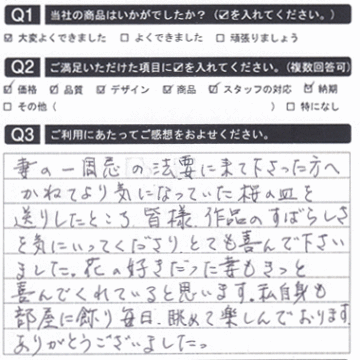 Q1 当社の商品はいかがでしたか？（☑を入れてください。）
☑ 大変よくできました □ よくできました □ 頑張りましょう
Q2 ご満足いただけた項目に☑を入れてください。（複数回答可）
☑ 価格 ☑ 品質 ☑ デザイン ☑ 商品 ☑ スタッフの対応 ☑ 納期
□ その他（ ） □ 特になし
Q3 ご利用にあたってご感想をおよせください。
妻の一周忌の法要に来て下さった方へ
かねてより気になっていた桜の皿を
送りしたところ、皆様、作品のすばらしさ
を気にいってくださり、とても喜んで下さい
ました。花の好きだった妻もきっと
喜んでくれていると思います。私自身も
部屋に飾り毎日、眺めて楽しんでおります。
ありがとうございましたっ